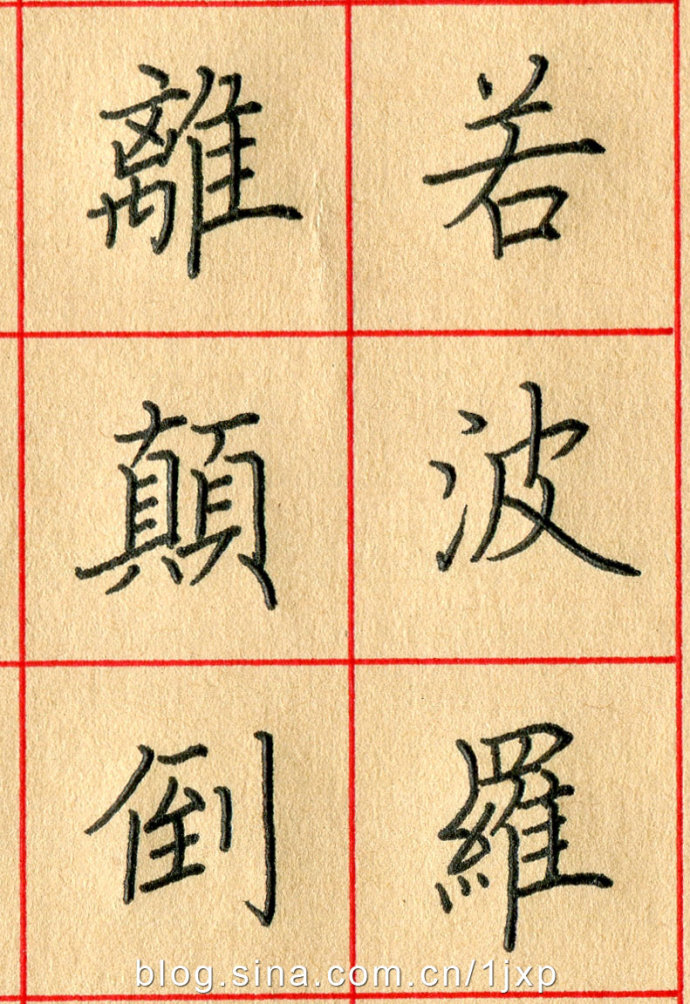 若波羅
離顛倒
blog.sina.com.cn/1jxp